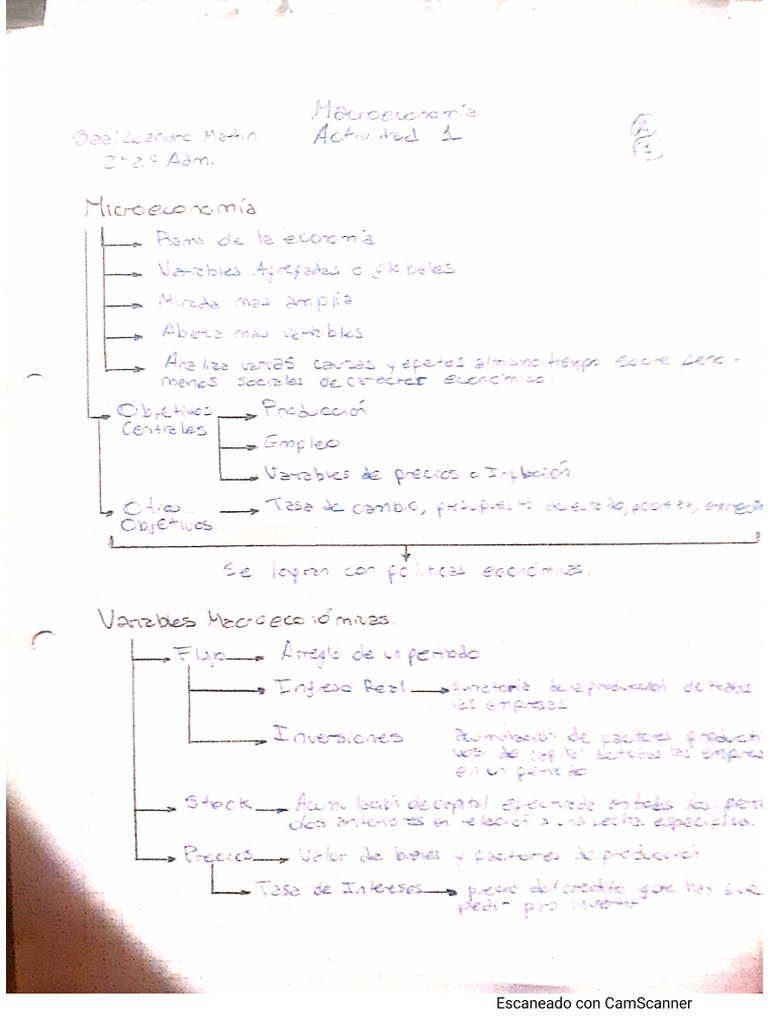 Macroeconomía
Leandro Martin Actividad 1
2° 2° Adm.
Microeconomía
Rama de la economía
Variables Agregadas o globales
Mirada mas amplia
Abarca mas variables
Analiza varias causas y efectos al mismo tiempo sobre feno-
menos sociales de caracter económico.
Objetivos Producción
Centrales
Empleo
Variables de precios o Inflación
Otros Tasa de cambio, presupuesto de estado, pobreza,
Objetivos
Se logran con políticas económicas.
Variables Macroeconómicas.
Flujo Arreglo de un periodo
Ingreso Real Sumatoria de la producción de todas
las empresas
Inversiones acumulación de factores producti
vos de capital de todas las empres
en un periodo
Stock Acumulación de capital efectuada en todos los perio
dos anteriores en relación a una fecha especifica.
Precios Valor de bienes y factores de producción
Tasa de Intereses precio del credito que hay que
pedir para invertir
Escaneado con CamScanner